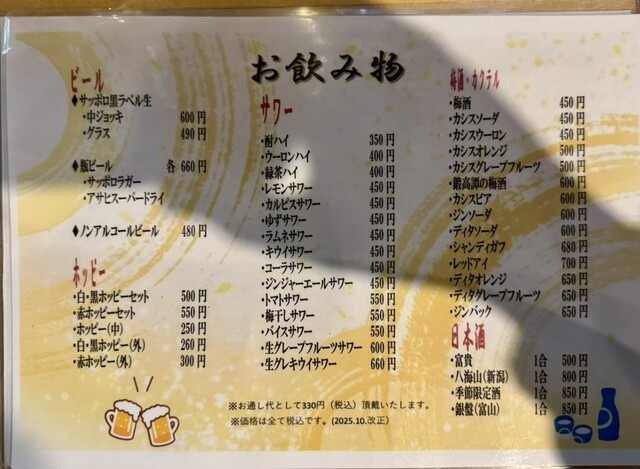 お飲み物
ビール
◆サッポロ黒ラベル生
・中ジョッキ 600円
・グラス 490円
◆瓶ビール 各 660円
・サッポロラガー
・アサヒスーパードライ
◆ノンアルコールビール 480円
ホッピー
・白・黒ホッピーセット 500円
・赤ホッピーセット 550円
・ホッピー(中) 250円
・白・黒ホッピー(外) 260円
・赤ホッピー(外) 300円
サワー
・酎ハイ 350円
・ウーロンハイ 400円
・緑茶ハイ 400円
・レモンサワー 400円
・カルピスサワー 450円
・ゆずサワー 450円
・ラムネサワー 450円
・キウイサワー 450円
・コーラサワー 450円
・ジンジャーエールサワー 450円
・トマトサワー 550円
・梅干しサワー 550円
・バイスサワー 550円
・生グレープフルーツサワー 600円
・生グレキウイサワー 660円
※お通し代として330円（税込）頂戴いたします。
※価格は全て税込です。(2025.10.改正)
梅酒・カクテル
・梅酒 450円
・カシスソーダ 450円
・カシスウーロン 450円
・カシスオレンジ 500円
・カシスグレープフルーツ 500円
・鍛高譚の梅酒 600円
・カシスビア 600円
・ジンソーダ 600円
・ディタソーダ 600円
・シャンディガフ 680円
・レッドアイ 700円
・ディタオレンジ 650円
・ディタグレープフルーツ 650円
・ジンバック 650円
日本酒
・富貴 1合 500円
・八海山(新潟) 1合 800円
・季節限定酒 1合 850円
・銀盤(富山) 1合 850円